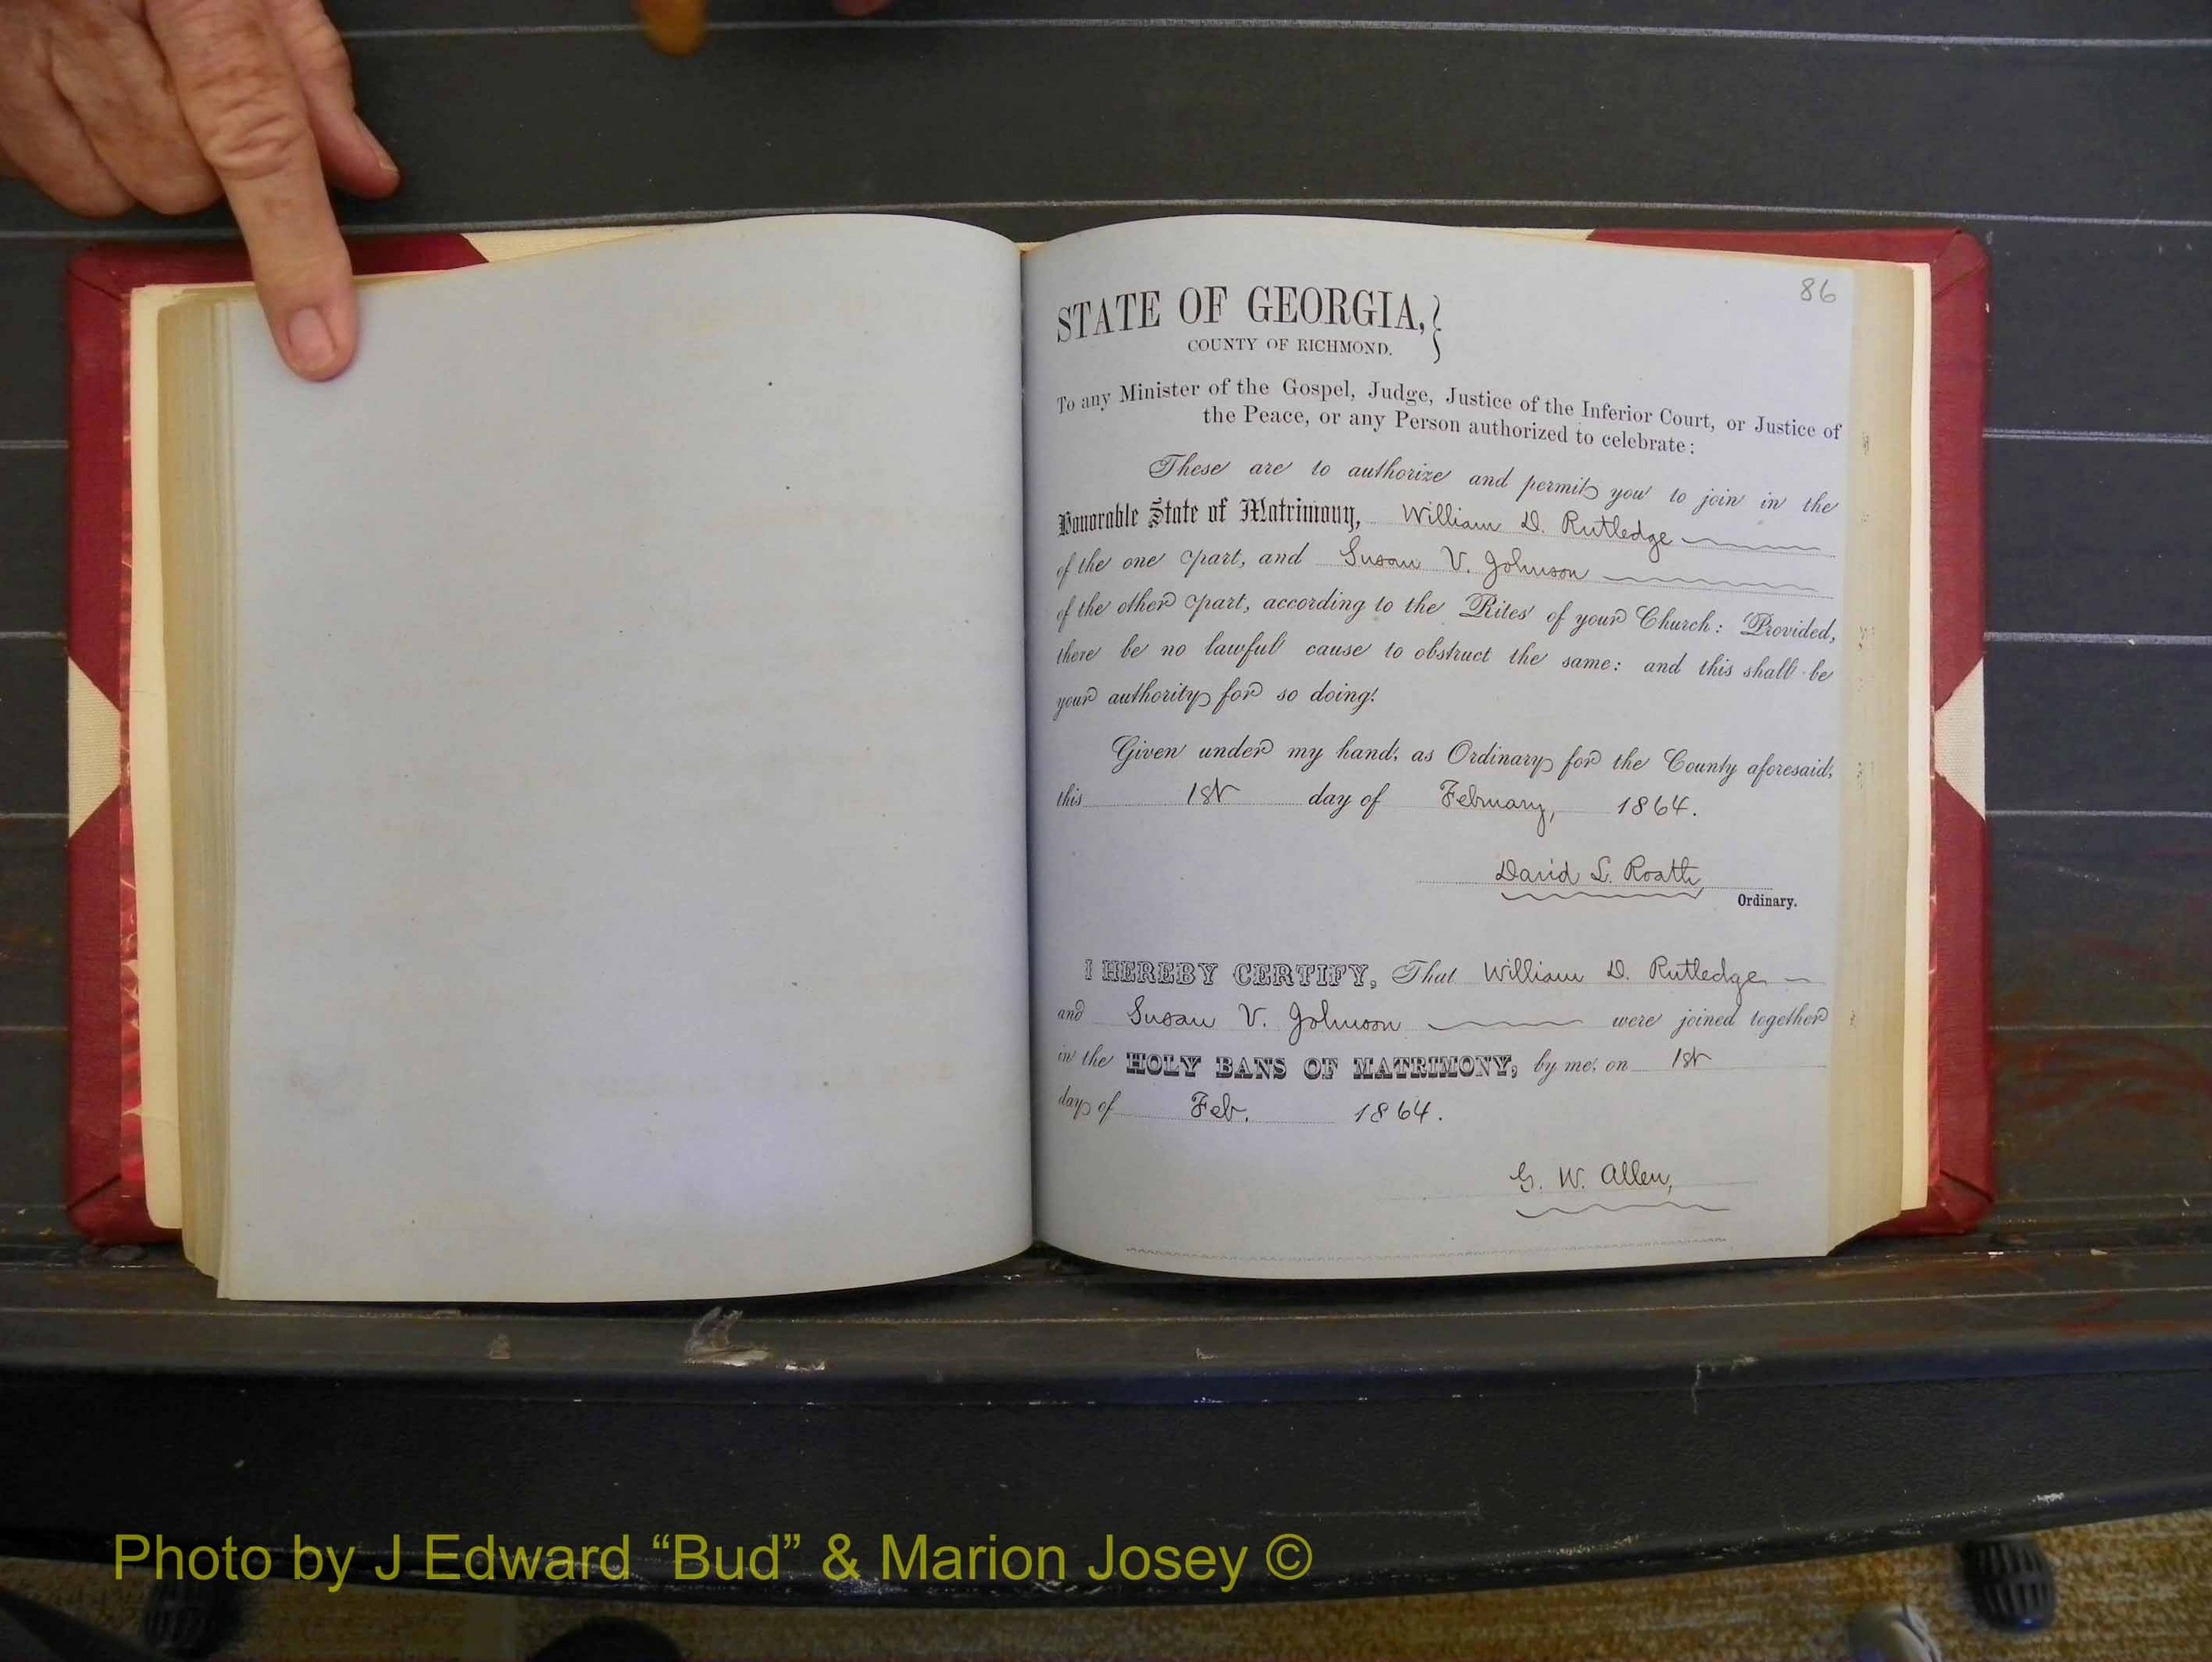 86
STATE OF GEORGIA,
COUNTY OF RICHMOND.
To any Minister of the Gospel, Judge, Justice of the Inferior Court, or Justice of
the Peace, or any Person authorized to celebrate:
These are to authorize and permit you to join in the
Honorable State of Matrimony, William D. Rutledge
of the one part, and Susan V. Johnson
of the other part, according to the Rites of your Church: Provided,
there be no lawful cause to obstruct the same: and this shall be
your authority for so doing.
Given under my hand, as Ordinary for the County aforesaid,
this 1st day of February, 1864.
David L. Roath
Ordinary.
I HEREBY CERTIFY, That William D. Rutledge
and Susan V. Johnson were joined together
in the HOLY BANS OF MATRIMONY, by me, on 1st
day of Feb. 1864.
G. W. Allen,
Photo by J Edward “Bud” & Marion Josey ©